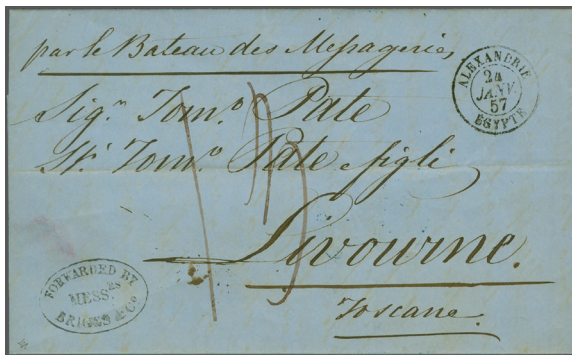 par le Bateau des Messageries
ALEXANDRIE
24
JANV.
57
EGYPTE
Sigr. Tomo. Pate
Tomo. Pate figli
Livourne.
Toscane.
FORWARDED BY
MESSRS
BRIGGS & Co